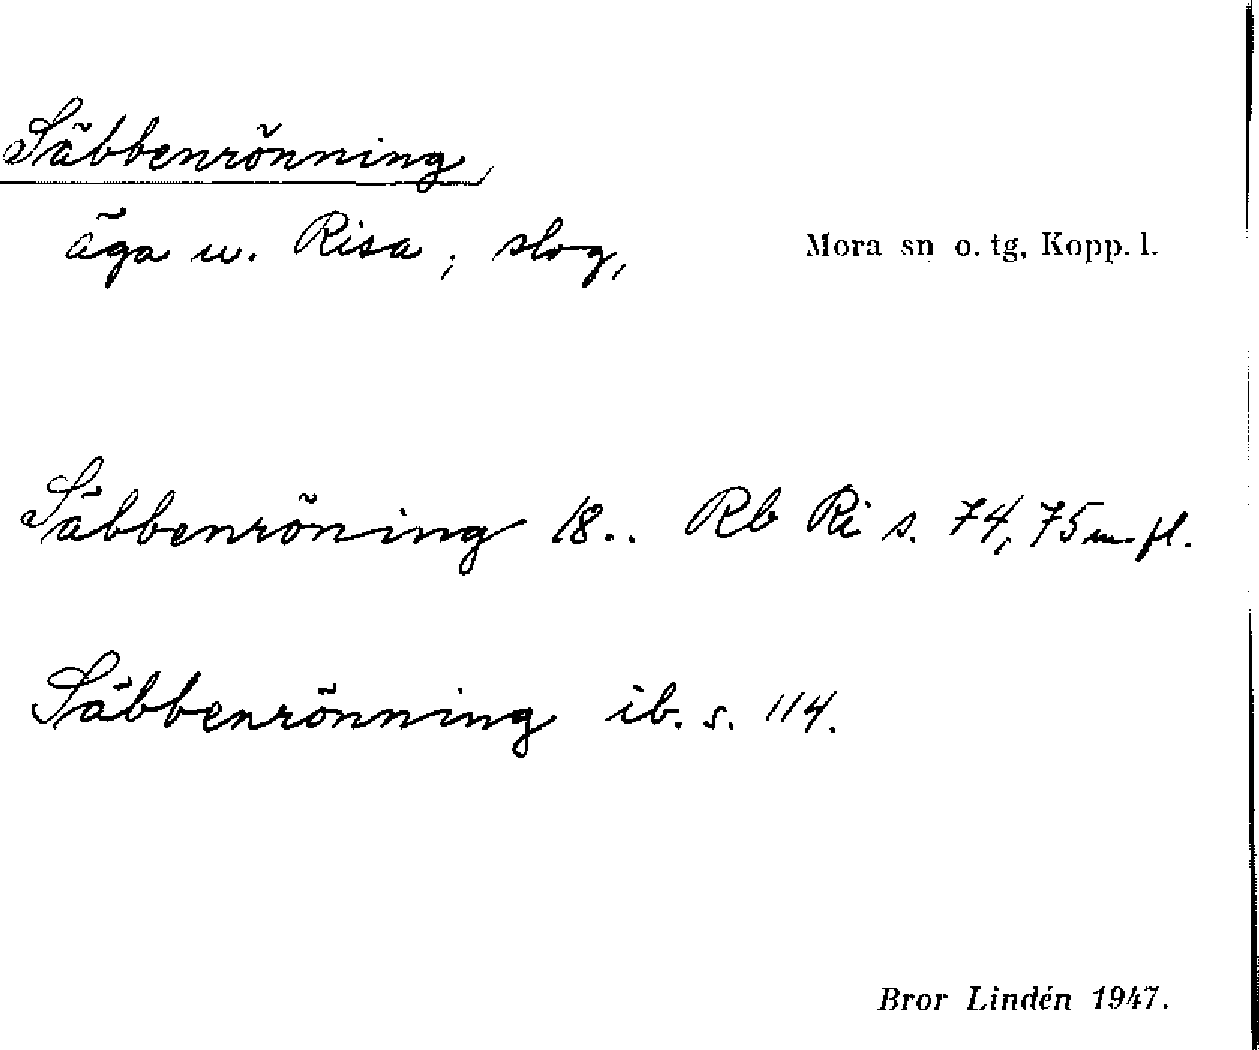 Säbbenrönning,
äga u. Risa; slog,
Mora sn o. tg, Kopp. l.
Säbbenröning 18.. Rb Ri s. 74, 75 m. fl.
Säbbenrönning ib. s. 114.
Bror Lindén 1947.